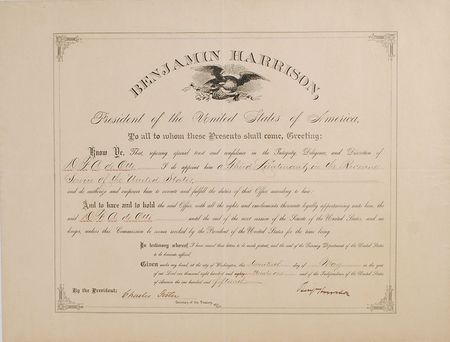 BENJAMIN HARRISON,
President of the United States of America,
To all to whom these Presents shall come, Greeting:
Know Ye, That, reposing special trust and confidence in the Integrity, Diligence, and Discretion of
D. F. A. de Otte I do appoint him a Third Lieutenant in the Revenue
Service of the United States,
and do authorize and empower him to execute and fulfil the duties of that Office according to law:
And to have and to hold the said Office, with all the rights and emoluments thereunto legally appertaining unto him, the
said D. F. A. de Otte until the end of the next session of the Senate of the United States, and no
longer, unless this Commission be sooner revoked by the President of the United States for the time being.
In testimony whereof, I have caused these Letters to be made patent, and the seal of the Treasury Department of the United States
to be hereunto affixed.
Given under my hand, at the city of Washington, this day of May in the year
of our Lord one thousand eight hundred and and of the Independence of the United States
of America the one hundred and fifteenth.
By the President: Benj Harrison
Charles Foster
Secretary of the Treasury.